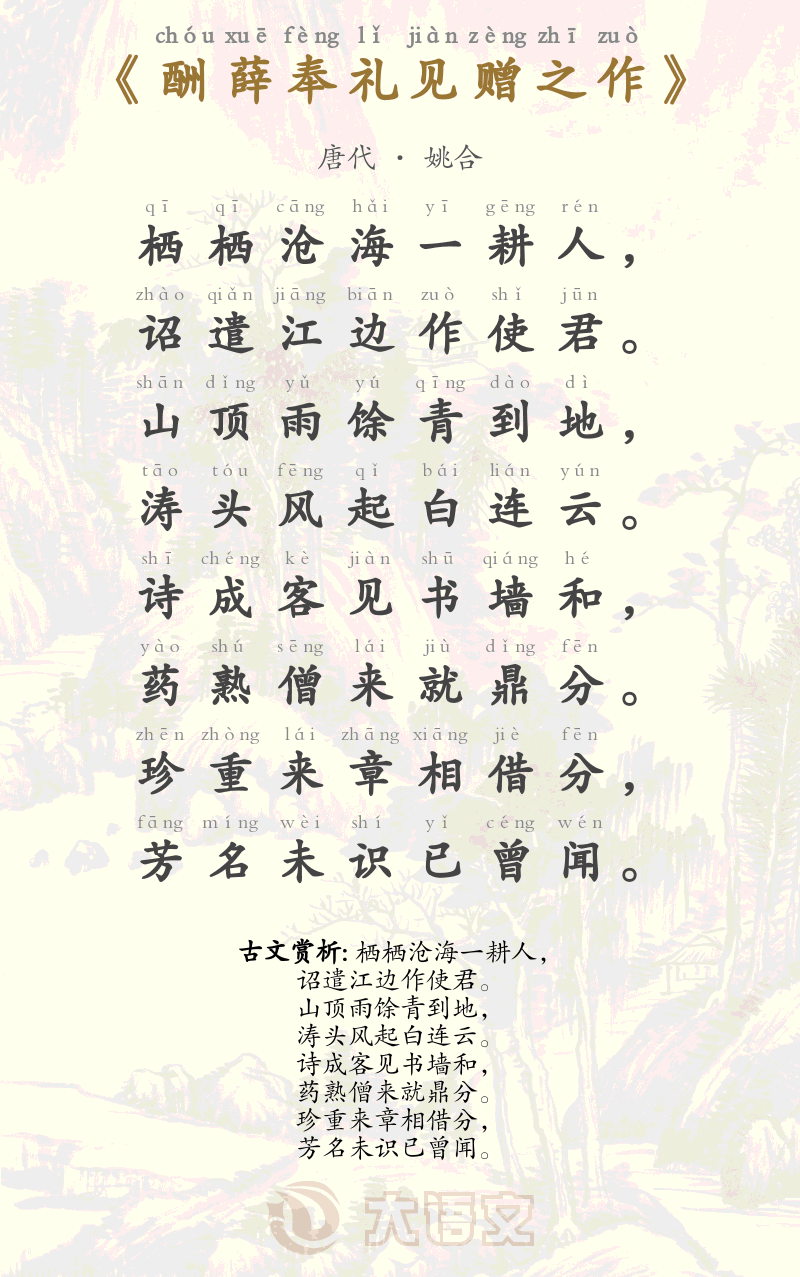 chóu xuē fèng lǐ jiàn zèng zhī zuò
《酬薛奉礼见赠之作》
唐代 · 姚合
qī qī cāng hǎi yī gēng rén
栖栖沧海一耕人，
zhào qiǎn jiāng biān zuò shǐ jūn
诏遣江边作使君。
shān dǐng yǔ yú qīng dào dì
山顶雨馀青到地，
tāo tóu fēng qǐ bái lián yún
涛头风起白连云。
shī chéng kè jiàn shū qiáng hé
诗成客见书墙和，
yào shú sēng lái jiù dǐng fēn
药熟僧来就鼎分。
zhēn zhòng lái zhāng xiāng jiè fēn
珍重来章相借分，
fāng míng wèi shí yǐ céng wén
芳名未识已曾闻。
古文赏析: 栖栖沧海一耕人，
诏遣江边作使君。
山顶雨馀青到地，
涛头风起白连云。
诗成客见书墙和，
药熟僧来就鼎分。
珍重来章相借分，
芳名未识已曾闻。
大语文